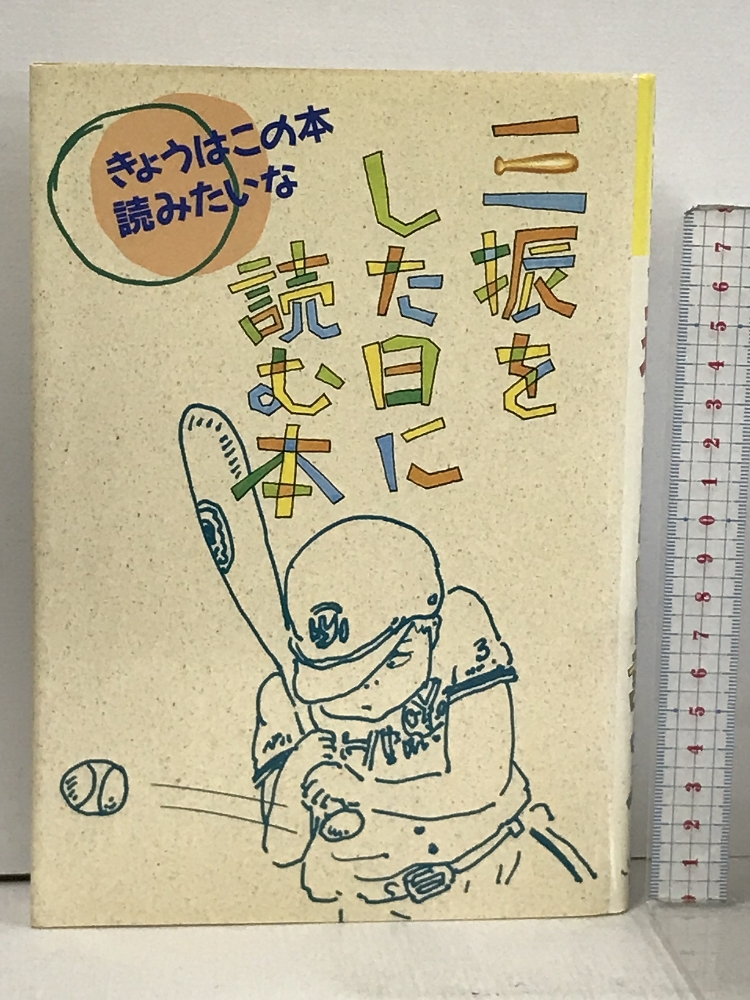 きょうはこの本
読みたいな
三振を
した日に
読む本
3
7
6
5
4
3
2
1
0
9
8
7
6
5
4
3
2
1